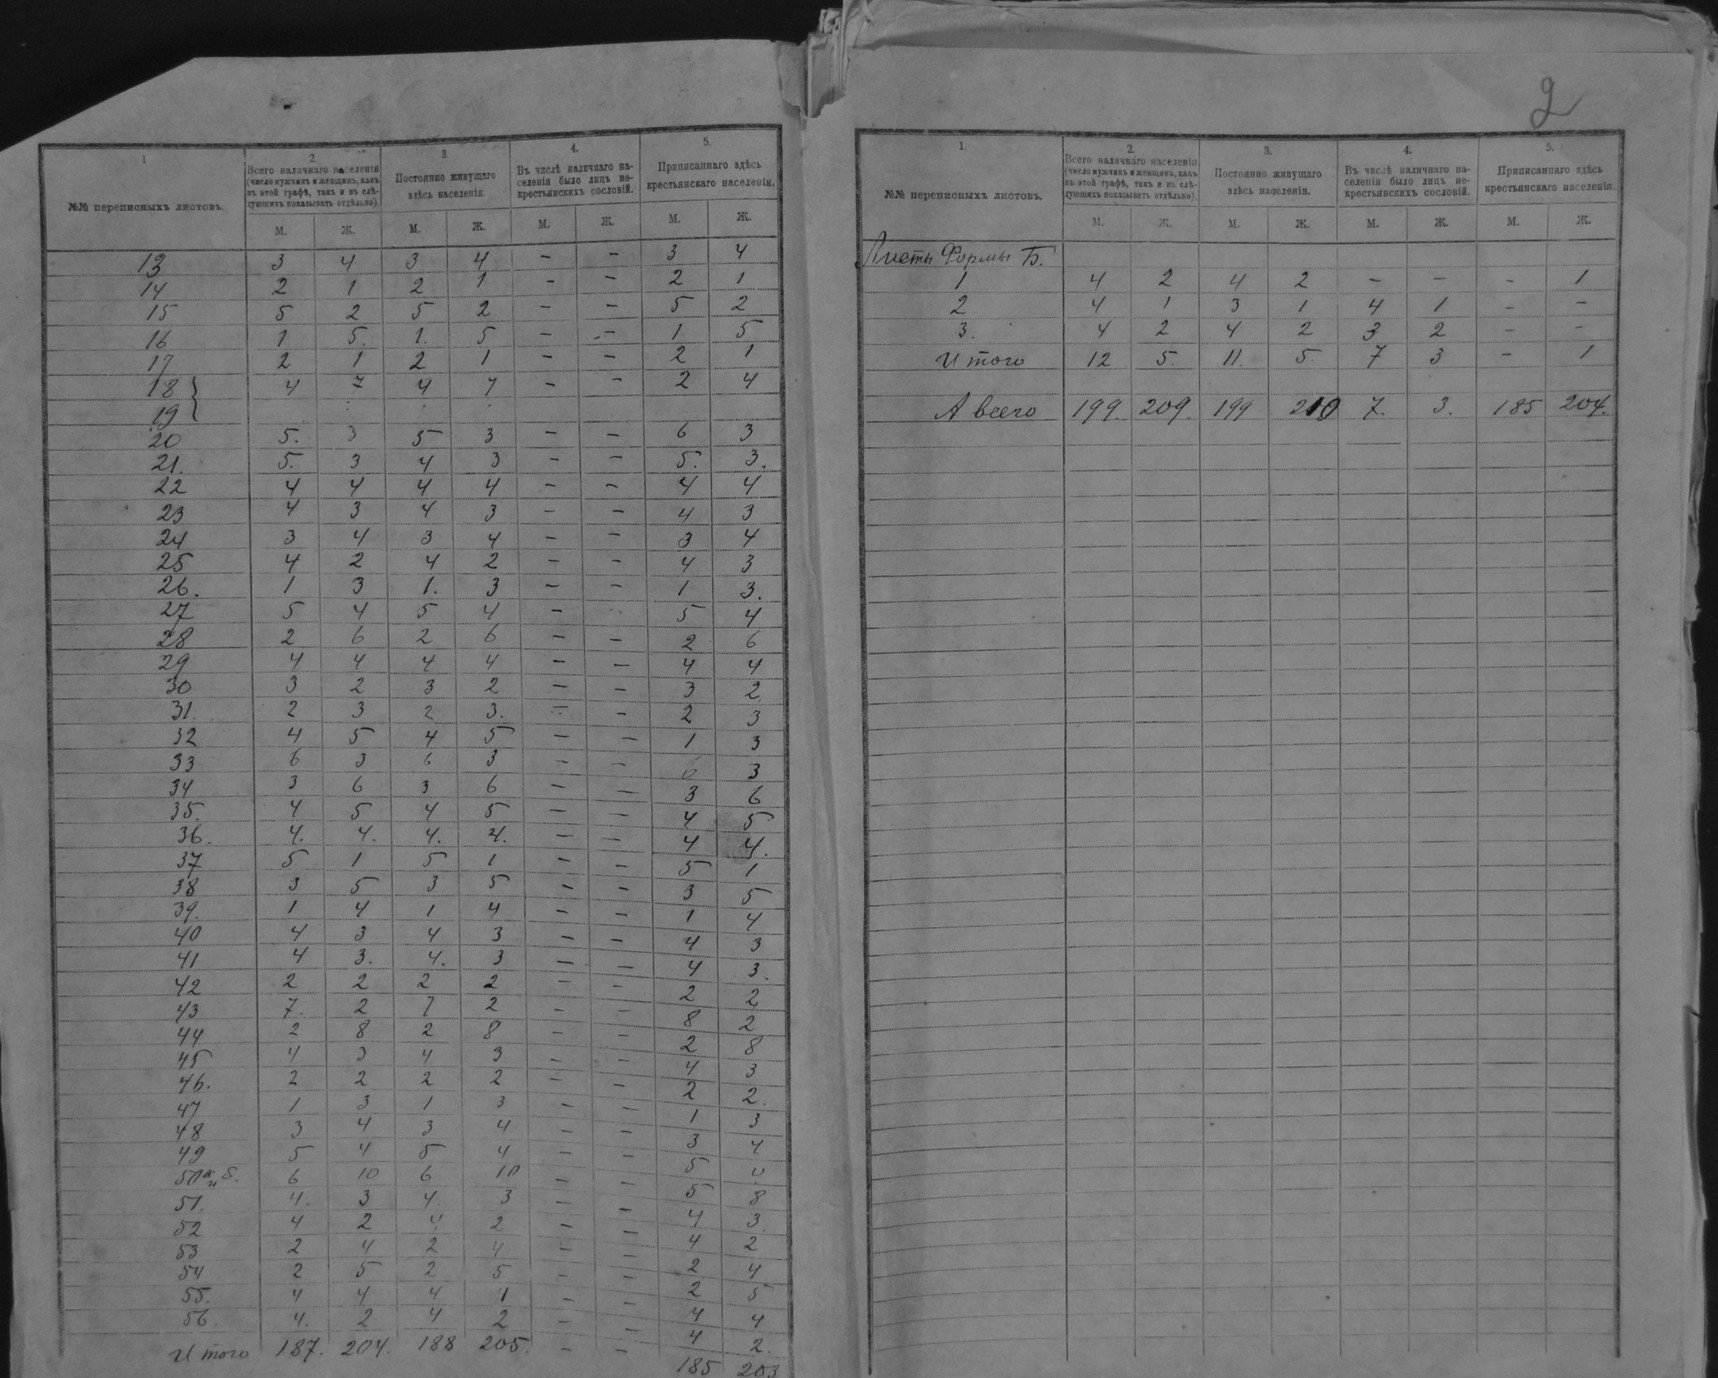 1
2.
Всего наличнаго населенія (число мужчинъ и женщинъ, какъ въ этой графѣ, такъ и въ слѣдующихъ показывать отдѣльно).
3
Постоянно живущаго здѣсь населенія.
4.
Въ числѣ наличнаго населенія было лицъ не-крестьянскихъ сословій.
5.
Приписаннаго здѣсь крестьянскаго населенія.
№№ переписныхъ листовъ.
М. Ж. М. Ж. М. Ж. М. Ж.
13 3 4 3 4 – – 3 4
14 2 1 2 1 – – 2 1
15 5 2 5 2 – – 5 2
16 1 5. 1. 5 – – 1 5
17 2 1 2 1 – – 2 1
18 } 4 7 4 7 – – 2 4
19 }
20 5. 3 5 3 – – 6 3
21. 5. 3 4 3 – – 5. 3.
22 4 4 4 4 – – 4 4
23 4 3 4 3 – – 4 3
24 3 4 3 4 – – 3 4
25 4 2 4 2 – – 4 3
26. 1 3 1. 3 – – 1 3.
27 5 4 5 4 – 5 4
28 2 6 2 6 – – 2 6
29 4 4 4 4 – – 4 4
30 3 2 3 2 – – 3 2
31. 2 3 2 3. – – 2 3
32 4 5 4 5 – – 1 3
33 6 3 6 3 – – 6 3
34 3 6 3 6 – – 3 6
35. 4 5 4 5 – – 4 5
36. 4. 4. 4. 4. – – 4 4.
37 5 1 5 1 – – 5 1
38 3 5 3 5 – – 3 5
39. 1 4 1 4 – – 1 4
40 4 3 4 3 – – 4 3
41 4 3. 4. 3 – – 4 3.
42 2 2 2 2 – – 2 2
43 7. 2 7 2 – – 8 2
44 2 8 2 8 – – 2 8
45 4 3 4 3 – – 4 3
46. 2 2 2 2 – – 2 2.
47 1 3 1 3 – – 1 3
48 3 4 3 4 – – 3 4
49 5 4 5 4 – – 5 4
50 а и б. 6 10 6 10 – – 5 8
51. 4. 3 4. 3 – – 4 3
52 4 2 4 2 – – 4 2
53 2 4 2 4 – – 2 4
54 2 5 2 5 – – 2 5
55. 4 4 4 4 – – 4 4
56. 4. 2 4 2 – – 4 2.
Итого 187. 204. 188 205. – – 185 203
2
1.
2.
Всего наличнаго населенія (число мужчинъ и женщинъ, какъ въ этой графѣ, такъ и въ слѣдующихъ показывать отдѣльно).
3.
Постоянно живущаго здѣсь населенія.
4.
Въ числѣ наличнаго населенія было лицъ не-крестьянскихъ сословій.
5.
Приписаннаго здѣсь крестьянскаго населенія.
№№ переписныхъ листовъ.
М. Ж. М. Ж. М. Ж. М. Ж.
Листы Формы Б.
1 4 2 4 2 – – – 1
2 4 1 3 1 4 1 – –
3. 4 2 4 2 3 2 – –
Итого 12 5. 11. 5. 7 3 – 1
А всего 199. 209. 199 210 7. 3. 185 204.